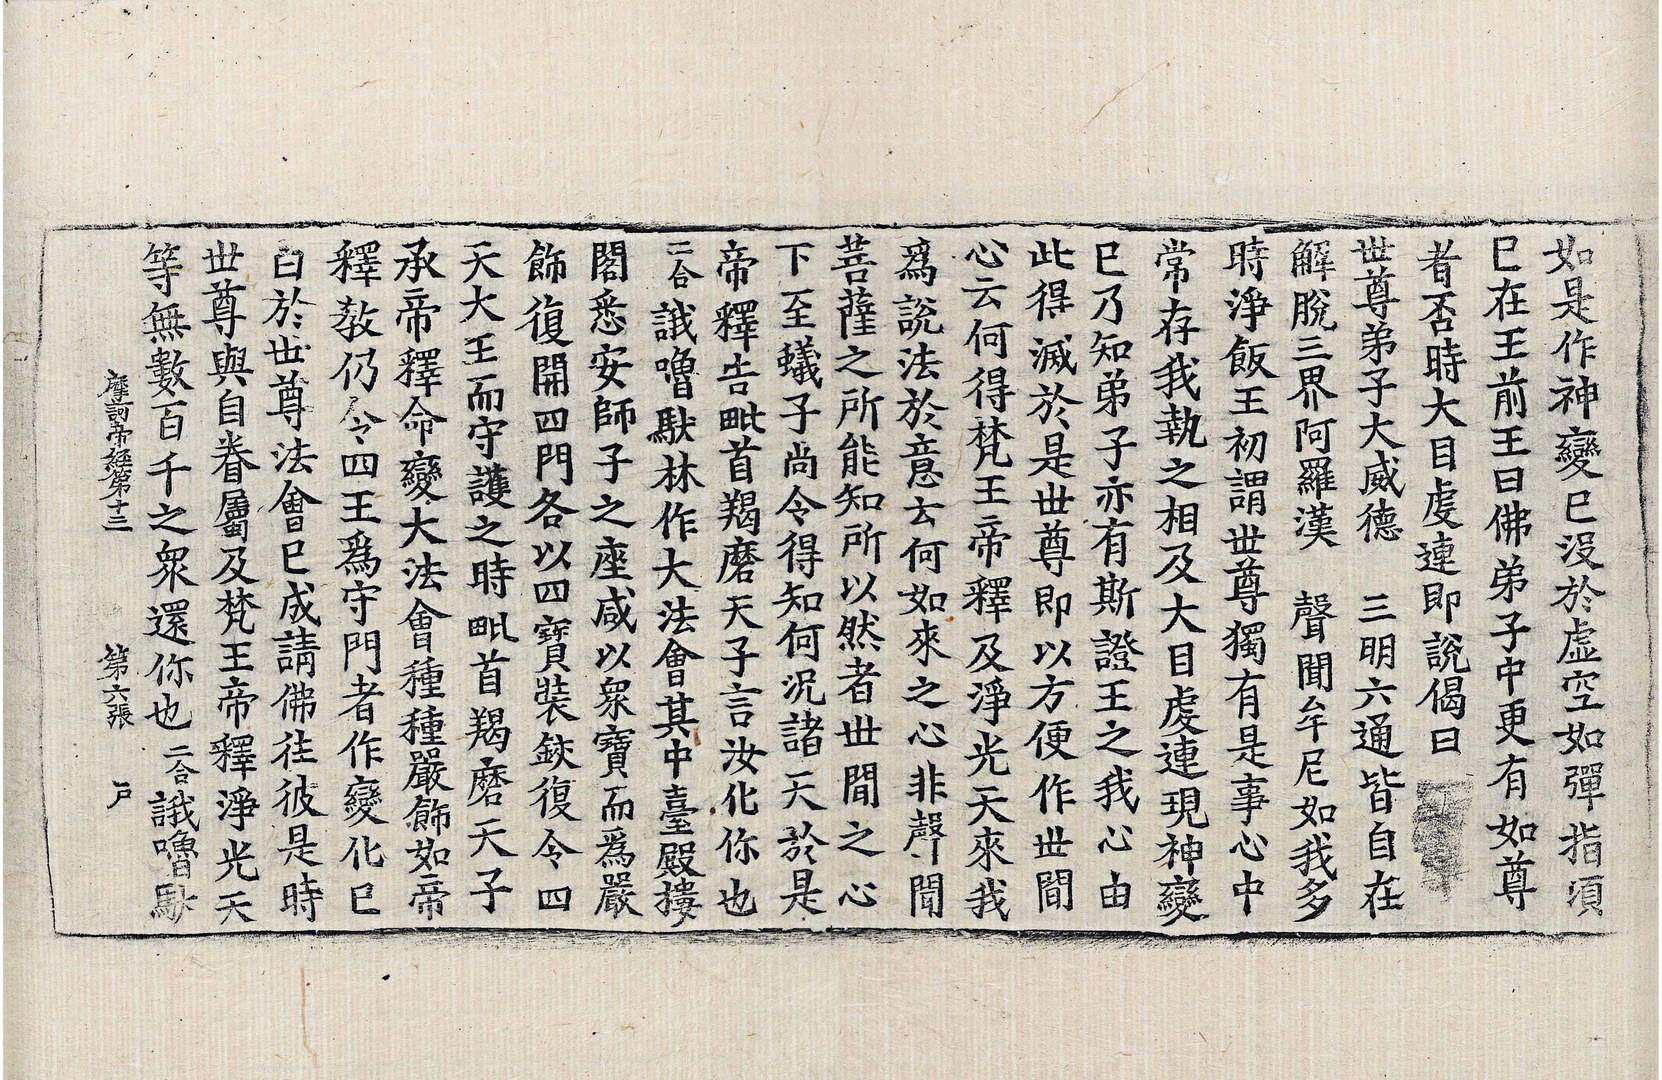 如是作神變已沒於虛空如彈指頃
已在王前王曰佛弟子中更有如尊
者否時大目虔連即說偈曰
世尊弟子大威德　三明六通皆自在
解脫三界阿羅漢　聲聞牟尼如我多
時淨飯王初謂世尊獨有是事心中
常存我執之相及大目虔連現神變
已乃知弟子亦有斯證王之我心由
此得滅於是世尊即以方便作世間
心云何得梵王帝釋及淨光天來我
為說法於意云何如來之心非聲聞
菩薩之所能知所以然者世間之心
下至蟻子尚令得知何況諸天於是
帝釋告毗首羯磨天子言汝化你也
二合誐嚕馱林作大法會其中臺殿樓
閣悉安師子之座咸以眾寶而為嚴
飾復開四門各以四寶裝鈸復令四
天大王而守護之時毗首羯磨天子
承帝釋命變大法會種種嚴飾如帝
釋教仍令四王為守門者作變化已
白於世尊法會已成請佛往彼是時
世尊與自眷屬及梵王帝釋淨光天
等無數百千之眾還你也二合誐嚕馱
摩訶帝經第十三　第六張　戶